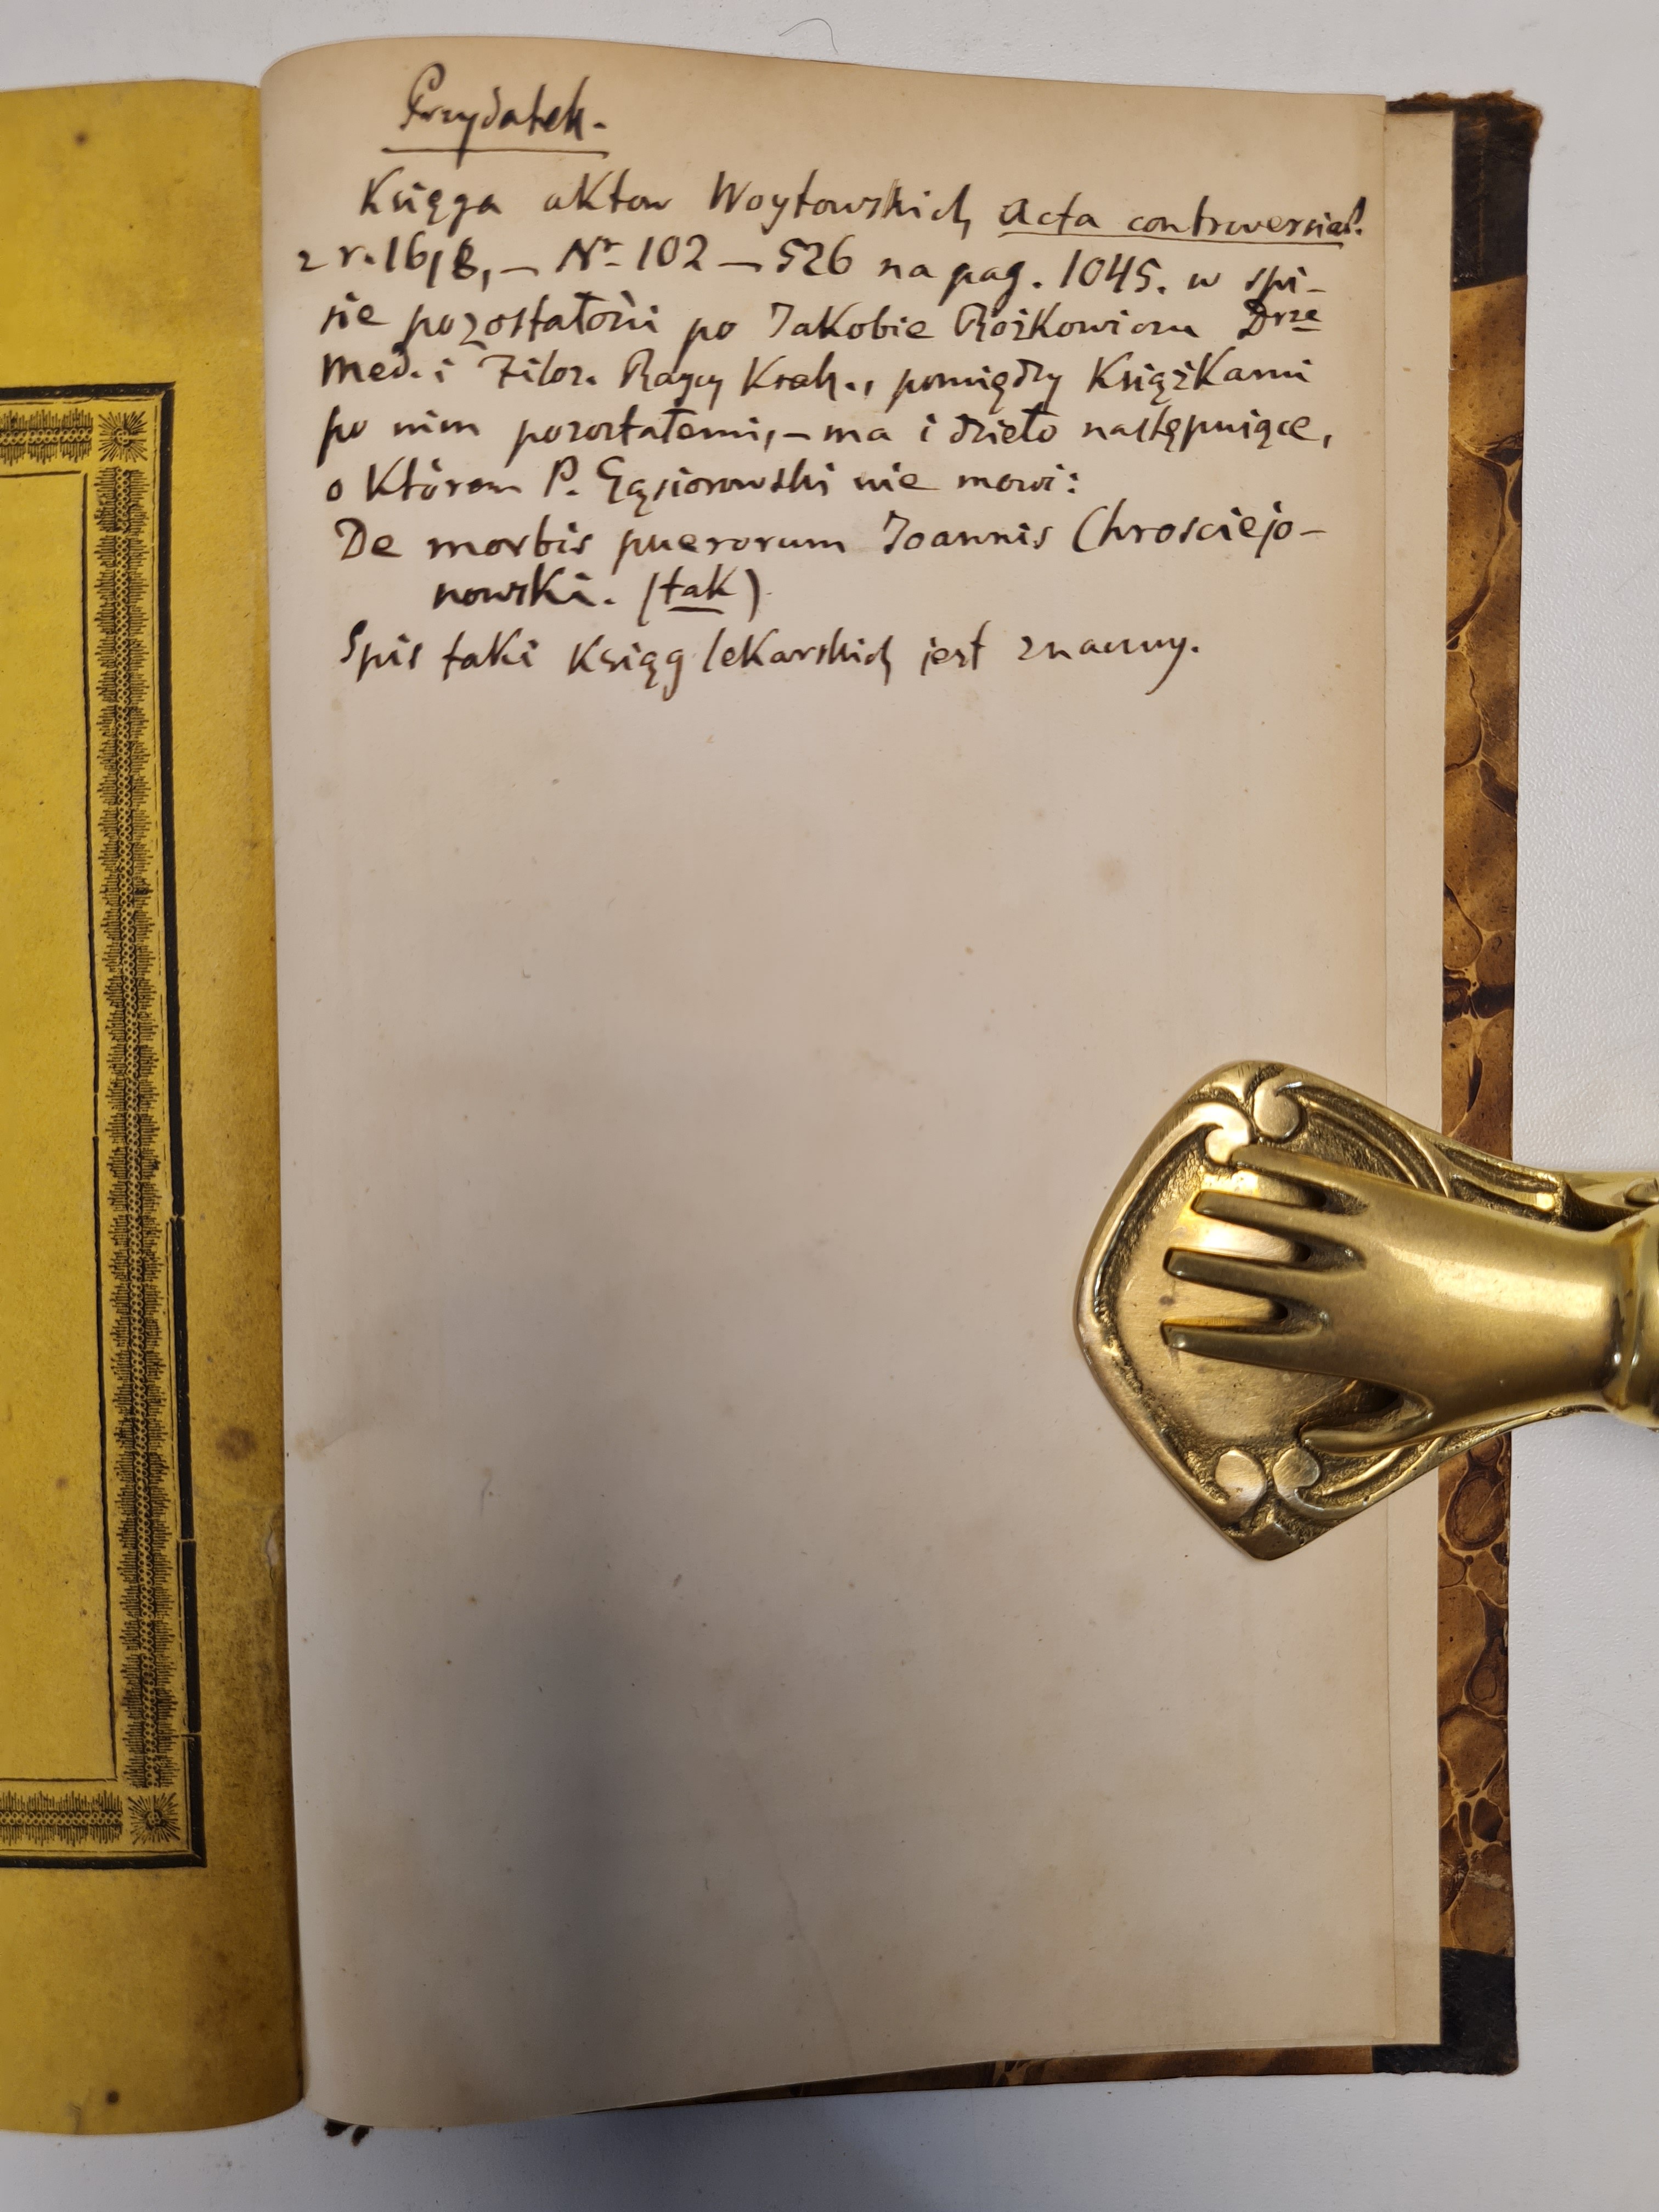 Przydatek.
Księga aktow Woytowskich Acta controversial.
z r. 1618, — Nr. 102 — 526 na pag. 1045. w spi-
sie pozostałości po Jakobie Rożkowiczu Drze
Med. i Filoz. Raycy Krak., pomiędzy Książkami
po nim pozostałemi, — ma i dzieło następuiące,
o Którem P. Gąsiorowski nie mowi:
De morbis puerorum Joannis Chrosciejo-
nowski. (tak)
Spis taki Ksiąg lekarskich jest znaczny.